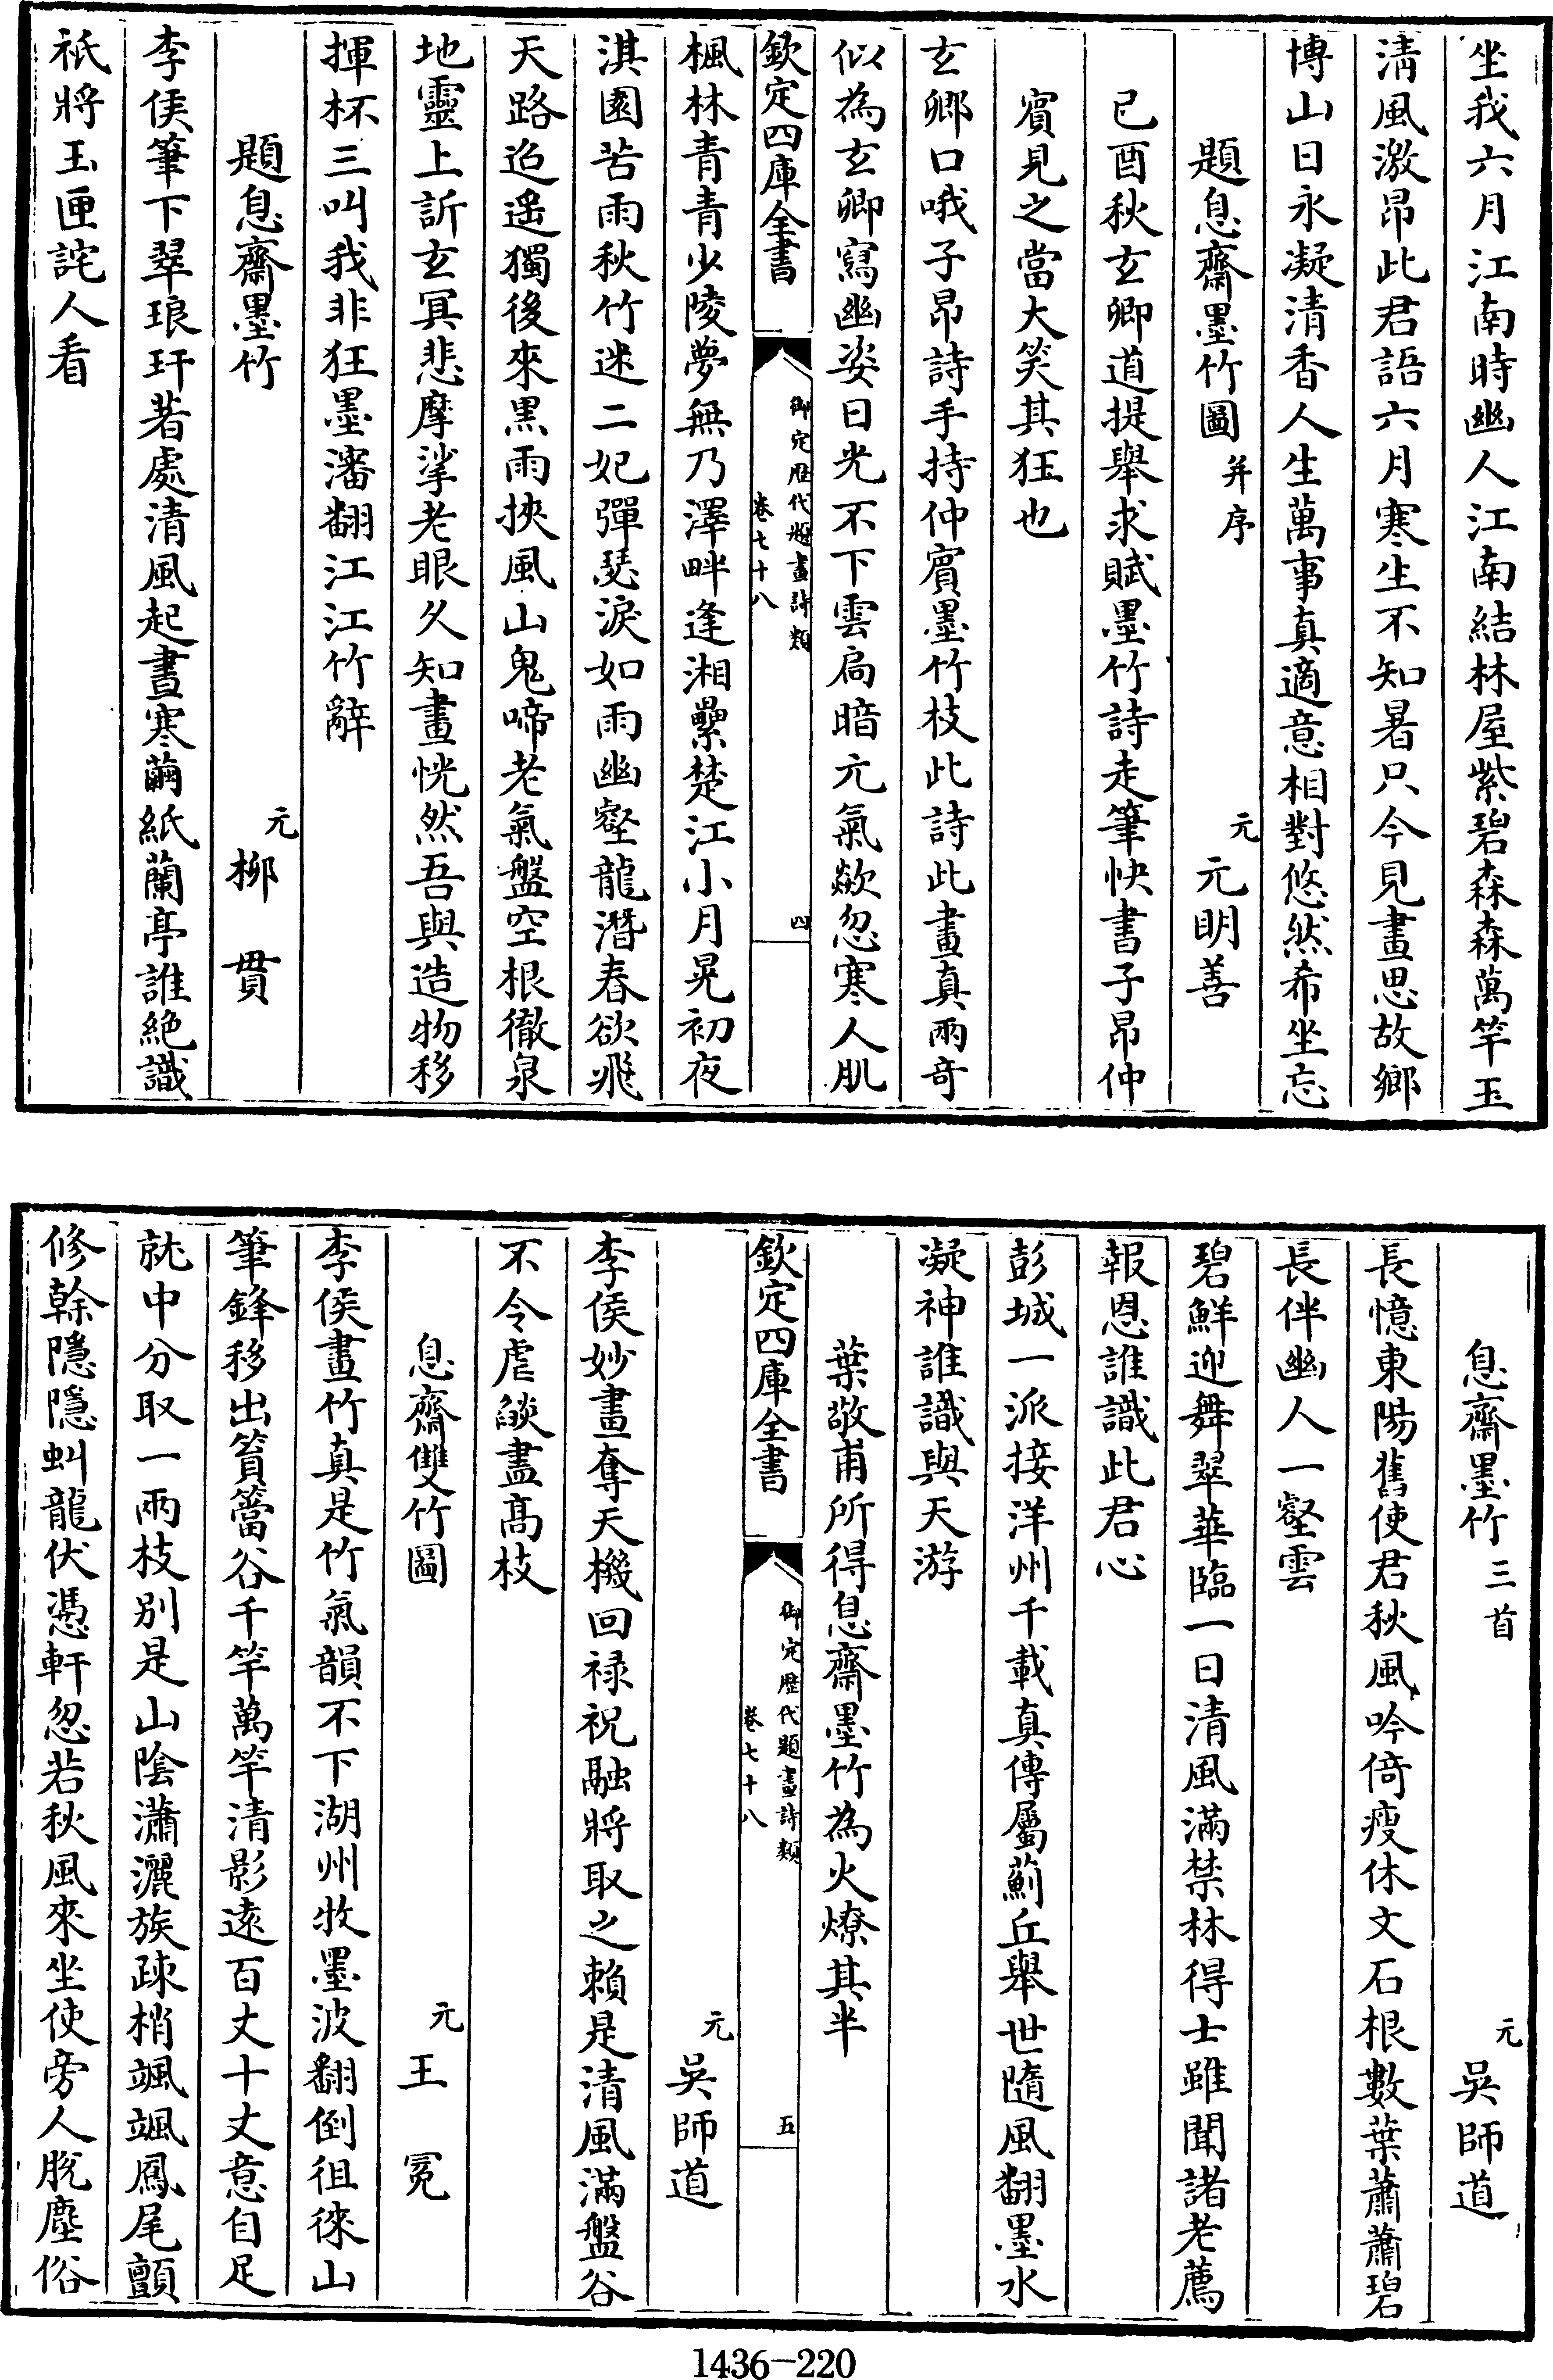 坐我六月江南時幽人江南結林屋紫碧森森萬竿玉
清風激昂此君語六月寒生不知暑只今見畫思故鄉
博山日永凝清香人生萬事真適意相對悠然希坐忘
題息齋墨竹圖并序 元 元明善
已酉秋玄卿道提舉求賦墨竹詩走筆快書子昂仲
賓見之當大笑其狂也
玄卿口哦子昂詩手持仲賓墨竹枝此詩此畫真兩奇
似為玄卿寫幽姿日光不下雲扃暗元氣歘忽寒人肌
欽定四庫全書 御定歷代題畫詩類 卷七十八 四
楓林青青少陵夢無乃澤畔逢湘纍楚江小月晃初夜
淇園苦雨秋竹迷二妃彈瑟淚如雨幽壑龍潛春欲飛
天路迢遥獨後來黑雨挾風山鬼啼老氣盤空根徹泉
地靈上訢玄冥悲摩挲老眼久知畫恍然吾與造物移
揮杯三叫我非狂墨瀋翻江江竹辭
題息齋墨竹 元 柳貫
李侯筆下翠琅玕著處清風起晝寒繭紙蘭亭誰絕識
祇將玉匣詫人看
息齋墨竹三首 元 吳師道
長憶東陽舊使君秋風吟倚瘦休文石根數葉蕭蕭碧
長伴幽人一壑雲
碧鮮迎舞翠華臨一日清風滿禁林得士雖聞諸老薦
報恩誰識此君心
彭城一派接洋州千載真傳屬薊丘舉世隨風翻墨水
凝神誰識與天游
葉敬甫所得息齋墨竹為火燎其半
欽定四庫全書 御定歷代題畫詩類 卷七十八 五
元 吳師道
李侯妙畫奪天機回祿祝融將取之賴是清風滿盤谷
不令虐燄盡髙枝
息齋雙竹圖 元 王冕
李侯畫竹真是竹氣韻不下湖州牧墨波翻倒徂徠山
筆鋒移出篔簹谷千竿萬竿清影遠百丈十丈意自足
就中分取一兩枝別是山陰瀟灑族疎梢颯颯鳳尾顫
修榦隱隱虯龍伏憑軒忽若秋風來坐使旁人脫塵俗
1436-220